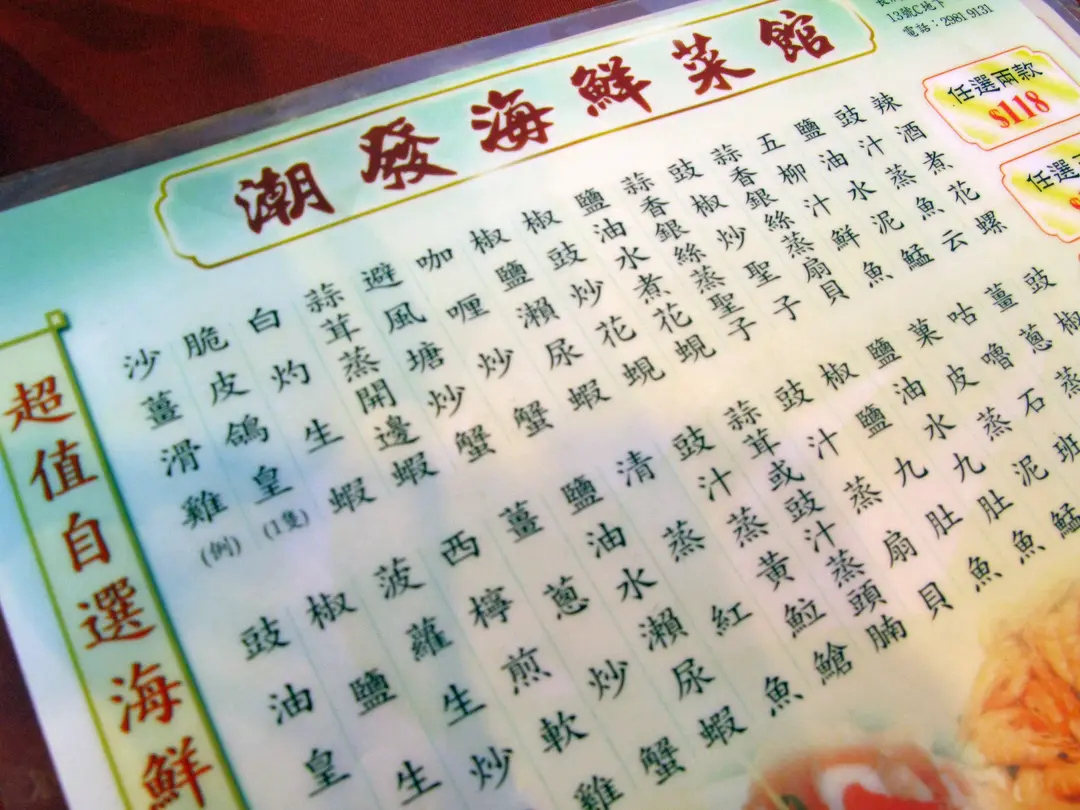 13號C地下
電話：2981 9131
潮發海鮮菜館
任選兩款
$118
任選
超值自選海鮮
沙薑滑雞(例)
脆皮鴿皇(1隻)
白灼生蝦
蒜茸蒸開邊蝦
避風塘炒蟹
咖喱炒蟹
椒鹽瀨尿蝦
椒豉炒花蜆
鹽油水煮花蜆
蒜香銀絲蒸聖子
豉椒炒聖子
蒜香銀絲蒸扇貝
五柳汁鮮魚
鹽油水泥鯭
豉汁蒸魚云
辣酒煮花螺
豉油皇
椒鹽生
菠蘿生炒
西檸煎軟雞
薑蔥炒蟹
鹽油水瀨尿蝦
清蒸紅魚
豉汁蒸黃𩶘鱠
蒜茸或豉汁蒸頭腩
豉汁蒸扇貝
椒鹽九肚魚
鹽油水九肚魚
菓皮蒸泥鯭
咕嚕石班
薑蔥蒸
豉椒